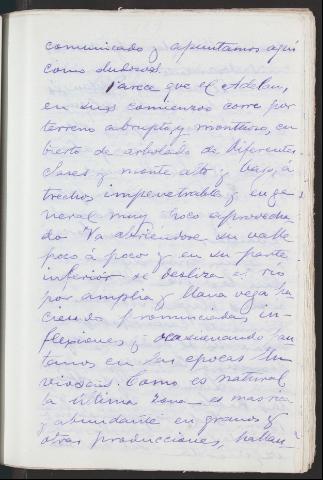 comunicado y apuntamos aquí
como dudosos
Parece que el Adelan,
en sus comienzos corre por
terreno abrupto y montuoso, cu
bierto de arbolado de diferentes
clases y monte alto y bajo, á
trechos impenetrable y en ge-
neral muy poco aprovecha
do. Va abriéndose su valle
poco á poco y en su parte
inferior se desliza el río
por amplia y llana vega ha
ciendo pronunciadas in-
flexiones y ocasionando pan
tanos en las epocas llu
viosas. Como es natural
la última zona es mas rica
y abundante en granos y
otras producciones, hallan